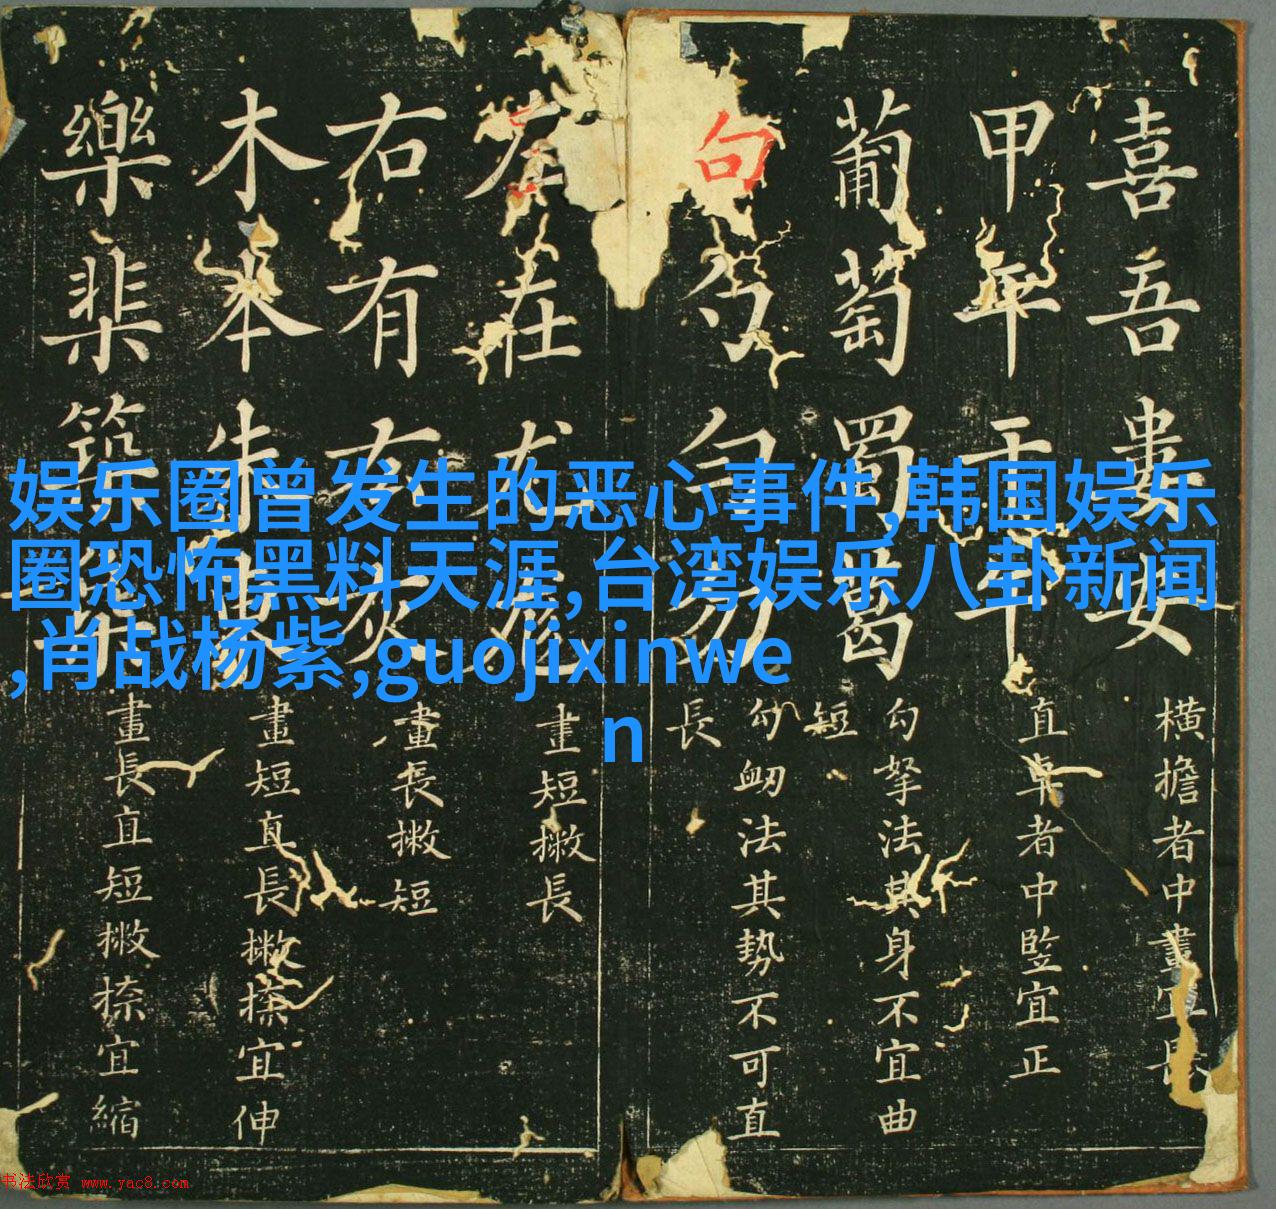 喜吾婁安
橫擔者中畫宜長
甲年干午
直卓者中竪宜正
葡萄蜀葛
勾拏法其身不宜曲短
句勺勻勿
勾衂法其势不可直長
左在尤尨
畫短撇長
右有友灰
畫長撇短
木本朱
畫短直長撇捺宜伸
樂棐築
畫長直短撇捺宜縮
娱乐圈曾发生的恶心事件,韩国娱乐
圈恐怖黑料天涯,台湾娱乐八卦新闻
,肖战杨紫,guojixinwe
n
书法欣赏 www.yac8.com